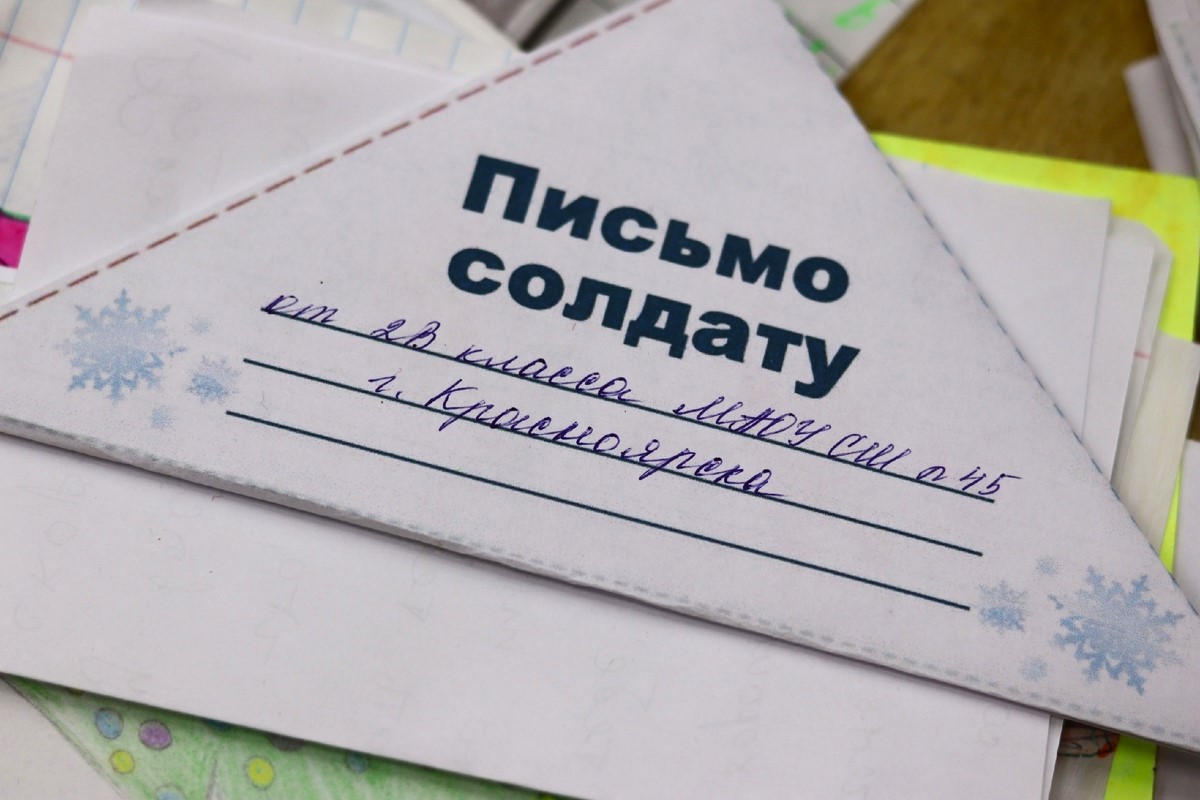 Письмо
солдату
от 2В класса МАОУ СШ n 45
г. Красноярска